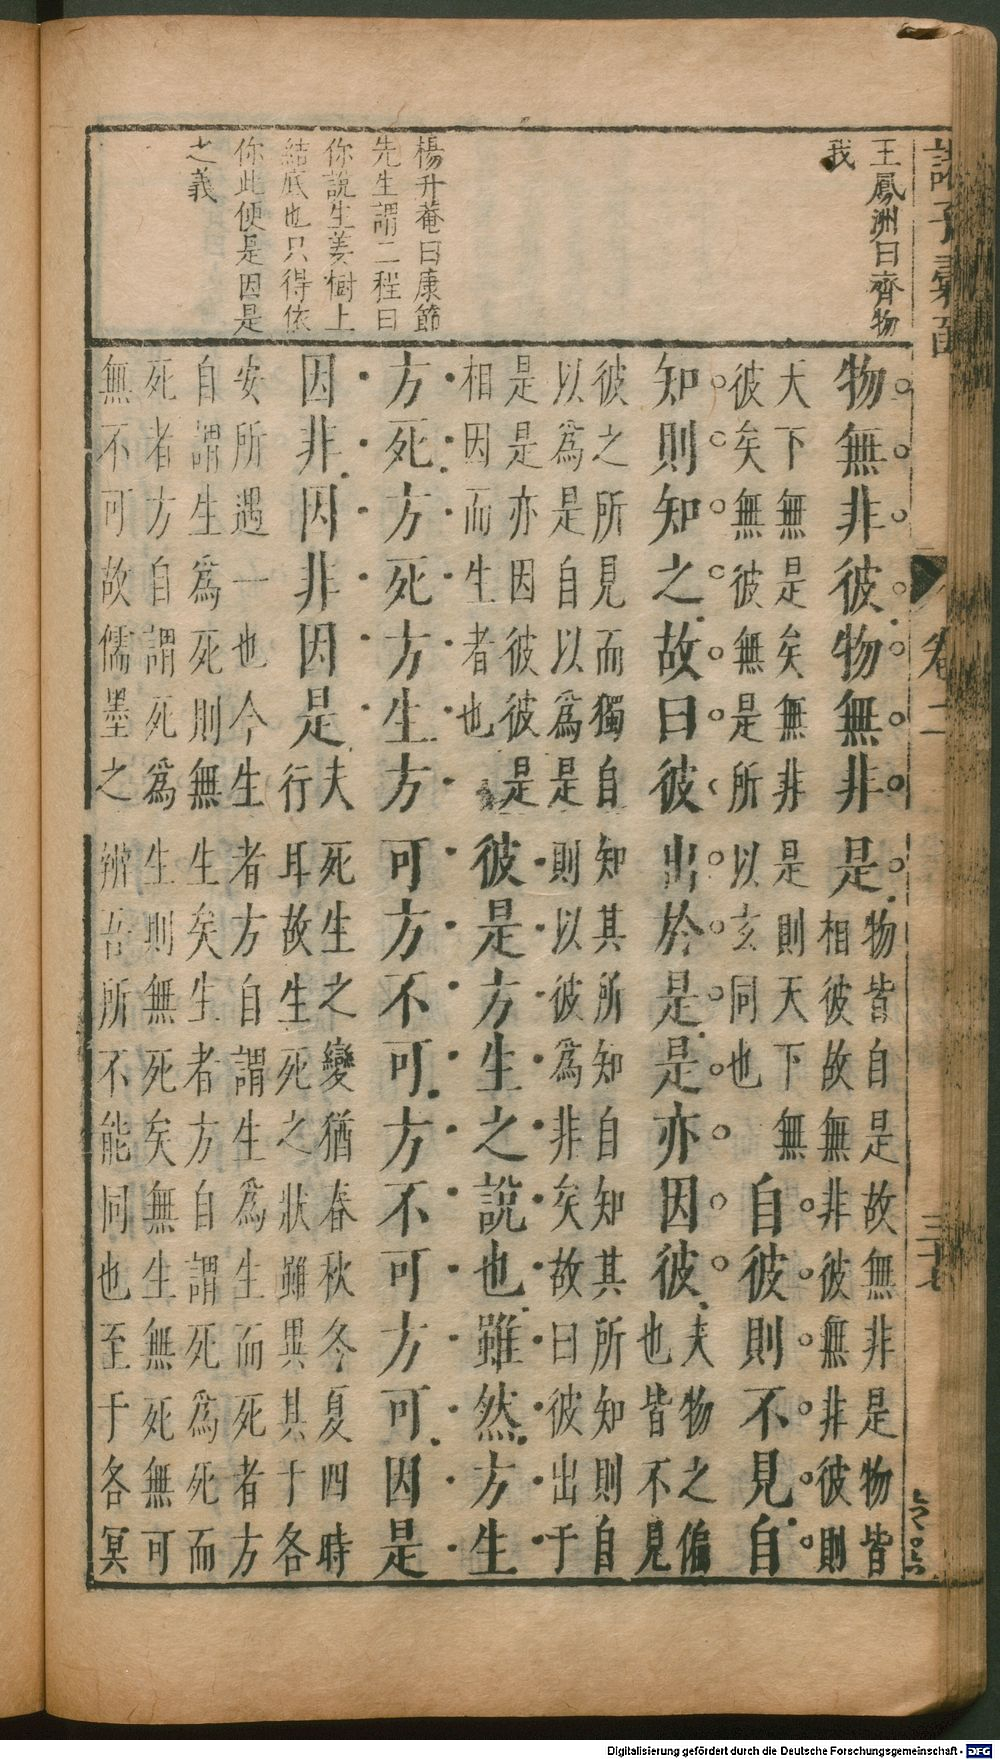 諸子彙函
卷二
三十七
王鳳洲曰齊物
我
楊升菴曰康節
先生謂二程曰
你說生姜樹上
結底也只得依
你此便是因是
之義
物無非彼物無非是物皆自是故無非是物皆相彼故無非彼無非彼則
天下無是矣無非是則天下無彼矣無彼無是所以玄同也自彼則不見自
知則知之故曰彼出於是是亦因彼夫物之偏也皆不見
彼之所見而獨自知其所知自知其所知則自以為是自以為是則以彼為非矣故曰彼出于
是是亦因彼彼是相因而生者也彼是方生之說也雖然方生
方死方死方生方可方不可方不可方可因是
因非因非因是夫死生之變猶春秋冬夏四時行耳故生死之狀雖異其于各
安所遇一也今生者方自謂生為生而死者方自謂生為死則無生矣生者方自謂死為死而
死者方自謂死為生則無死矣無生無死無可無不可故儒墨之辨吾所不能同也至于各冥
Digitalisierung gefördert durch die Deutsche Forschungsgemeinschaft - DFG